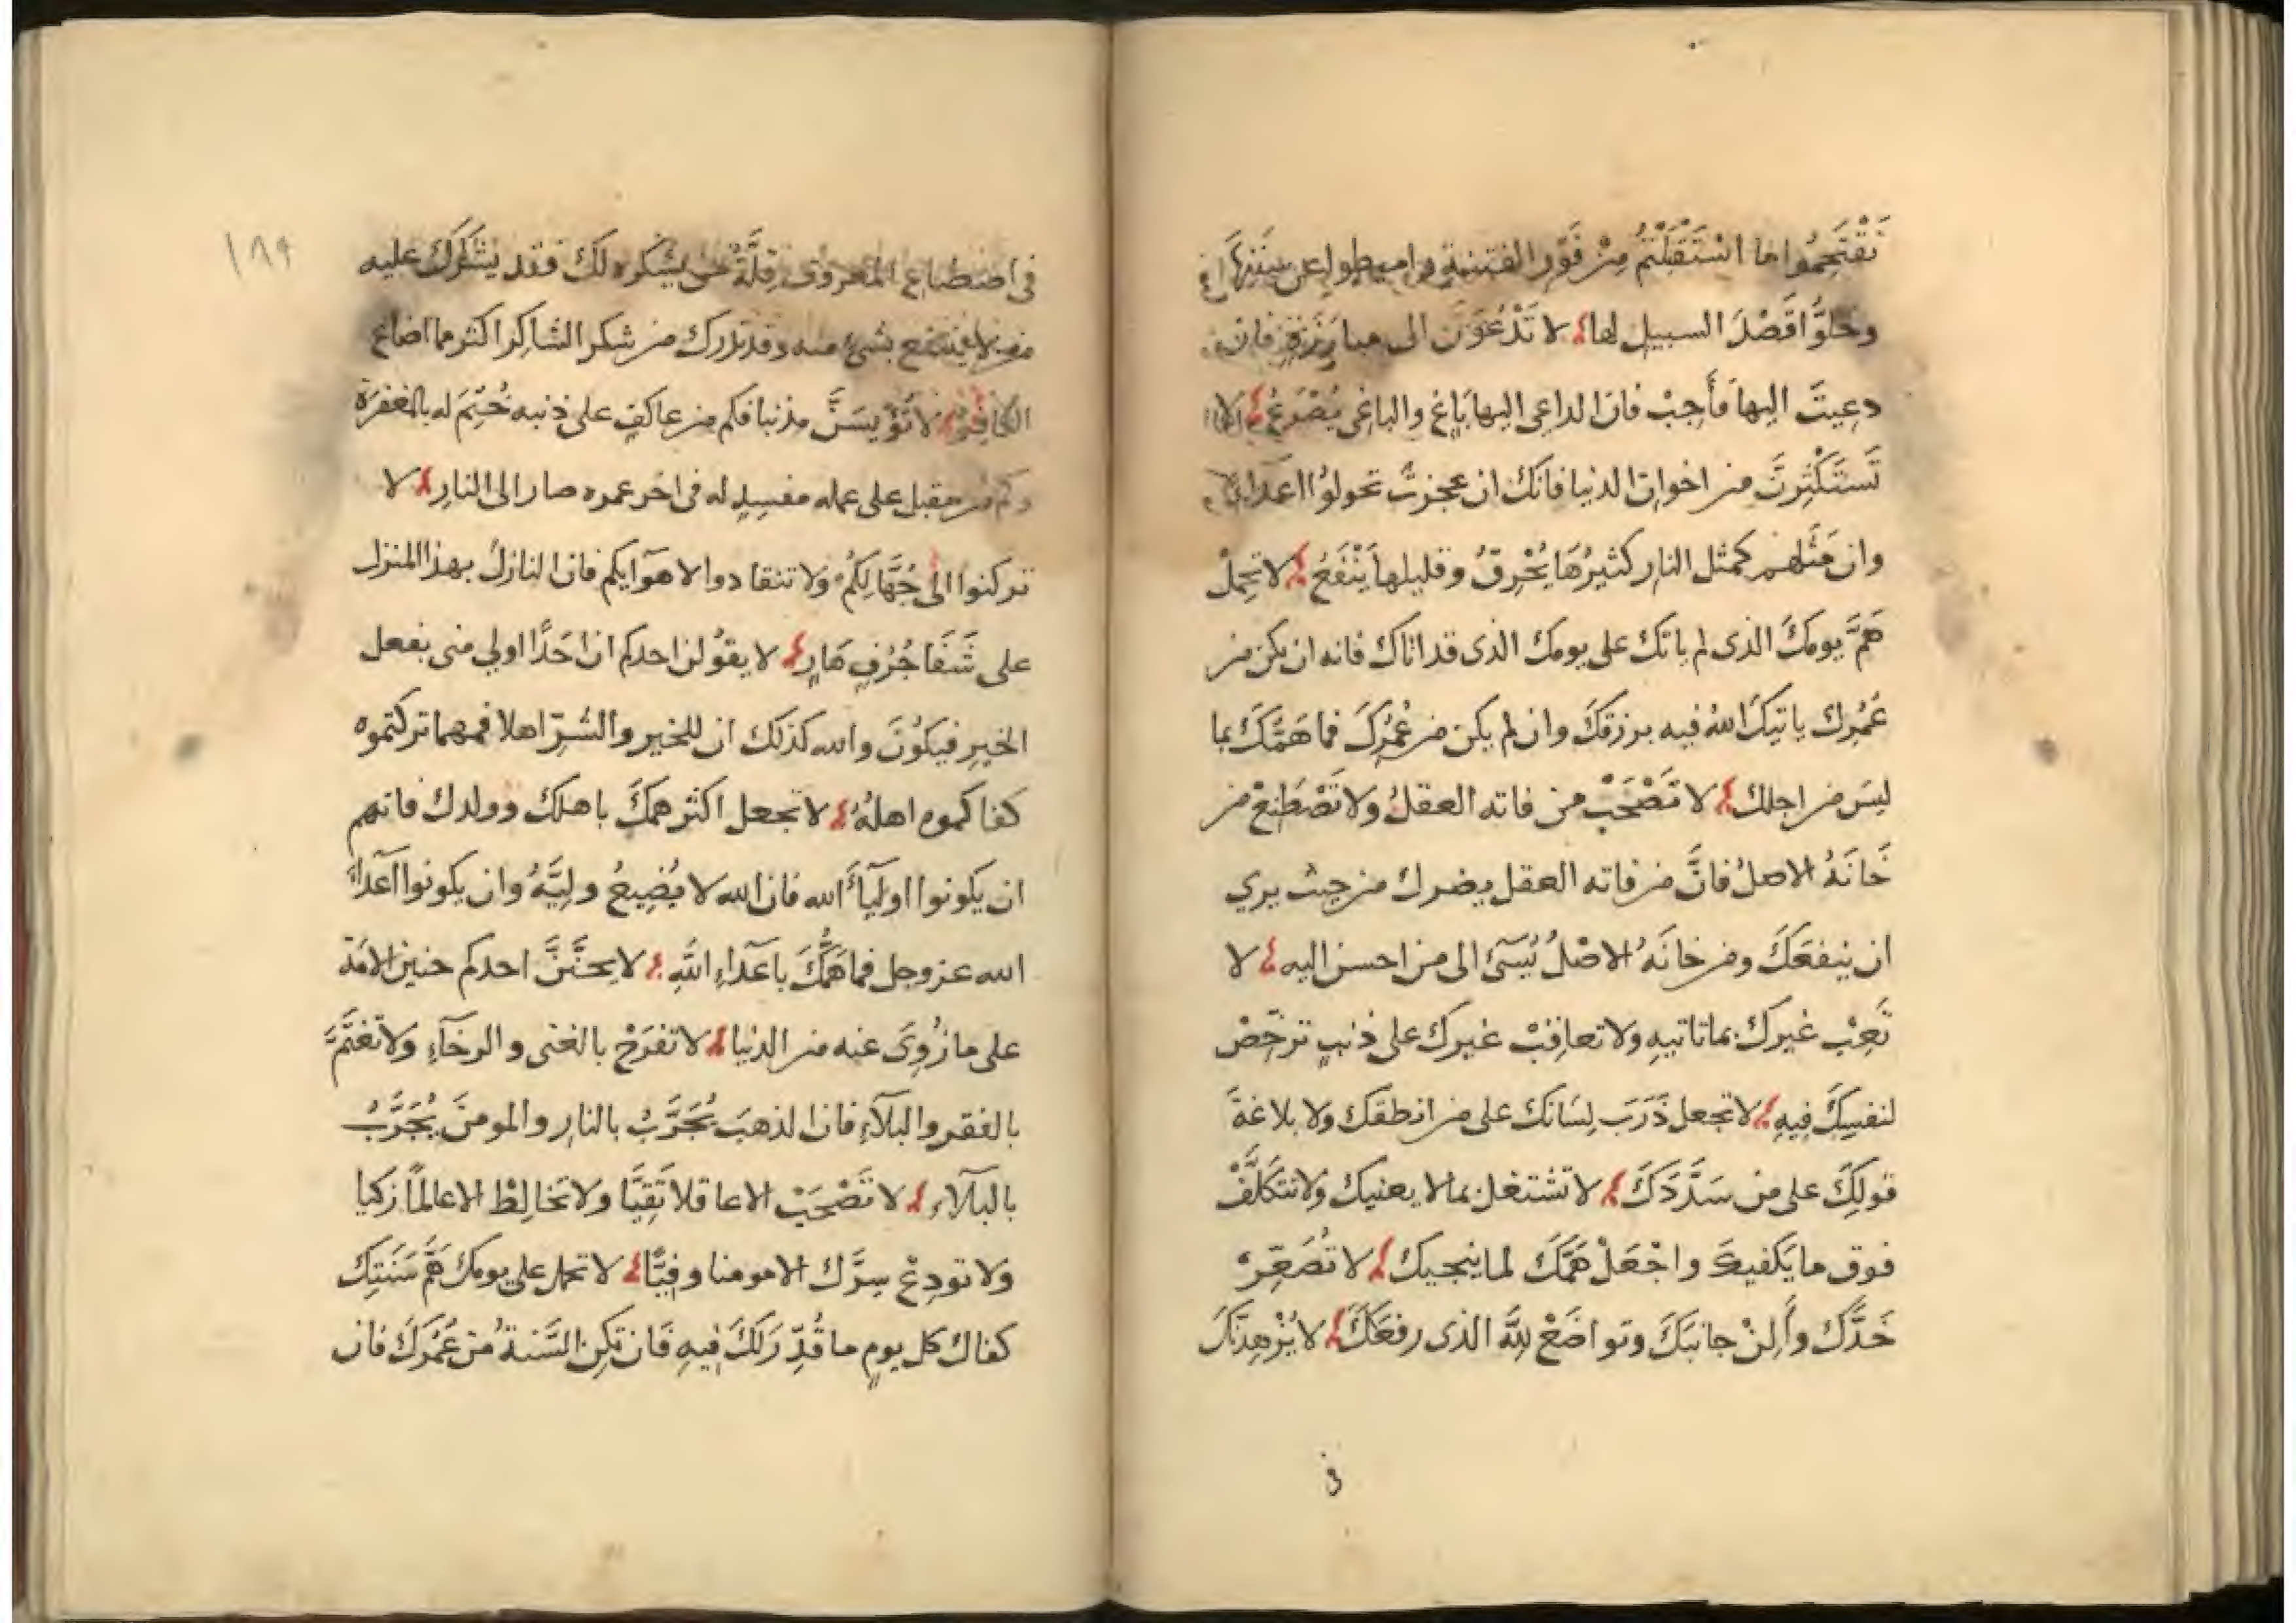 تَقْتَحِمُوا ما اسْتَقْبَلْتُمْ مِنْ فَوْرِ الفتنة واميطوا عن سَنَنِهَا
وخلوُّا قَصْدَ السبيل لها لا تَدْعُوَنَّ الى مبارَزَةٍ فان
دعِيتَ اليها فَأَجِبْ فان الداعي اليها بَاغٍ والباغي يُصْرَعُ لا
تَستَكْثِرَنَّ من اخوان الدنيا فانك ان عجزتَ تحولوُا اعدآءً
وان مَثَلهم كمثل النار كثيرُهَا يُحْرِقُ وقليلها يَنْفَعُ لا تحمِلْ
هَمَّ يومِكَ الذى لم ياتك على يومك الذى قد اتاك فانه ان يكن من
عُمُرِكَ ياتيكَ اللهُ فيه برزقكَ وان لم يكن من عُمُرِكَ فما هَمُّكَ بما
ليسَ من اجلك لا تَصْحَبْ من فاته العقلُ ولا تَصْطَنِعْ من
خَانَهُ الاصلُ فانَّ من فاته العقل يضرك من حيث يري
ان ينفعَكَ ومن خانَهُ الاصْلُ يُسَئُ الى من احسن اليه لا
تَعِبْ غيرك بما تاتيهِ ولا تعاقِبْ غيرك على ذنبٍ ترخّصْ
لنفسِكَ فِيهِ لا تجعل ذَرَبَ لِسَانك على من انطقك ولا بلاغةَ
قولِكَ على من سَدَّدَكَ لا تشتغل بما لا يعنيك ولا تتكَلَّفْ
فوق ما يَكفيكَ واجْعَلْ هَمَّكَ لما ينجيك لا تُصَعِّرْ
خَدَّك وأَلِنْ جانبَكَ وتواضَعْ لِلَّهِ الذى رفعَكَ لا يُزْهِدَنَّكَ
فى
١٨٩
فى اصطناع المعروف قِلَّةُ من يشكره لَكَ فقد يَشْكُرُكَ عليه
من لا ينتفع بشئ منه وقد تدرك من شكر الشاكر اكثر مما اضاع
الكافِرُ لا تُؤْيسَنَّ مذنبا فكم من عاكفٍ على ذنبه خُتِمَ له بالمغفرَة
وكم من مقبل على عمله مفسِدٍ له فى اخر عمره صار الى النارِ لا
تركنوا الى جُهَّالِكُمْ ولا تنقادوا لاهوآيكم فان النازلَ بهذا المنزل
على شَفَا جُرُفٍ هَارٍ لا يقوُلن احدكم ان احَدًا اولي مني بفعل
الخيرِ فيكوُنَ والله كذلك ان للخير والشرّ اهلا فمهما تركتموه
كفاكموه اهلهُ لا تجعل اكثر همكَ باهلك وولدك فانهم
ان يكونوا اوليآءَ الله فان الله لا يُضِيعُ وليَّهُ وان يكونوا اعدآءَ
الله عز وجل فما همُّكَ باعَدآءِ اللَّهِ لا يحنَّنَّ احدكم حنين الامَة
على ما زُوِىَ عنه من الدنيا لا تفرَحْ بالغنى والرخآءِ ولا تغتَمَّ
بالفقر والبلآءِ فان الذهبَ يُجَرَّبُ بالنارِ والمومنَ يُجَرَّبُ
بالبلآءِ لا تَصْحَبْ الا عاقلا تَقِيًّا ولا تخالِطْ الا عالمًا زكيا
ولا تودِعْ سِرَّك الا مومنا وفِيًّا لا تحمل على يومك هَمَّ سَنَتِك
كفاك كل يومٍ ما قُدِّرَ لَكَ فيهِ فَان تكنِ السَّنة مِن عُمُرِكَ فان